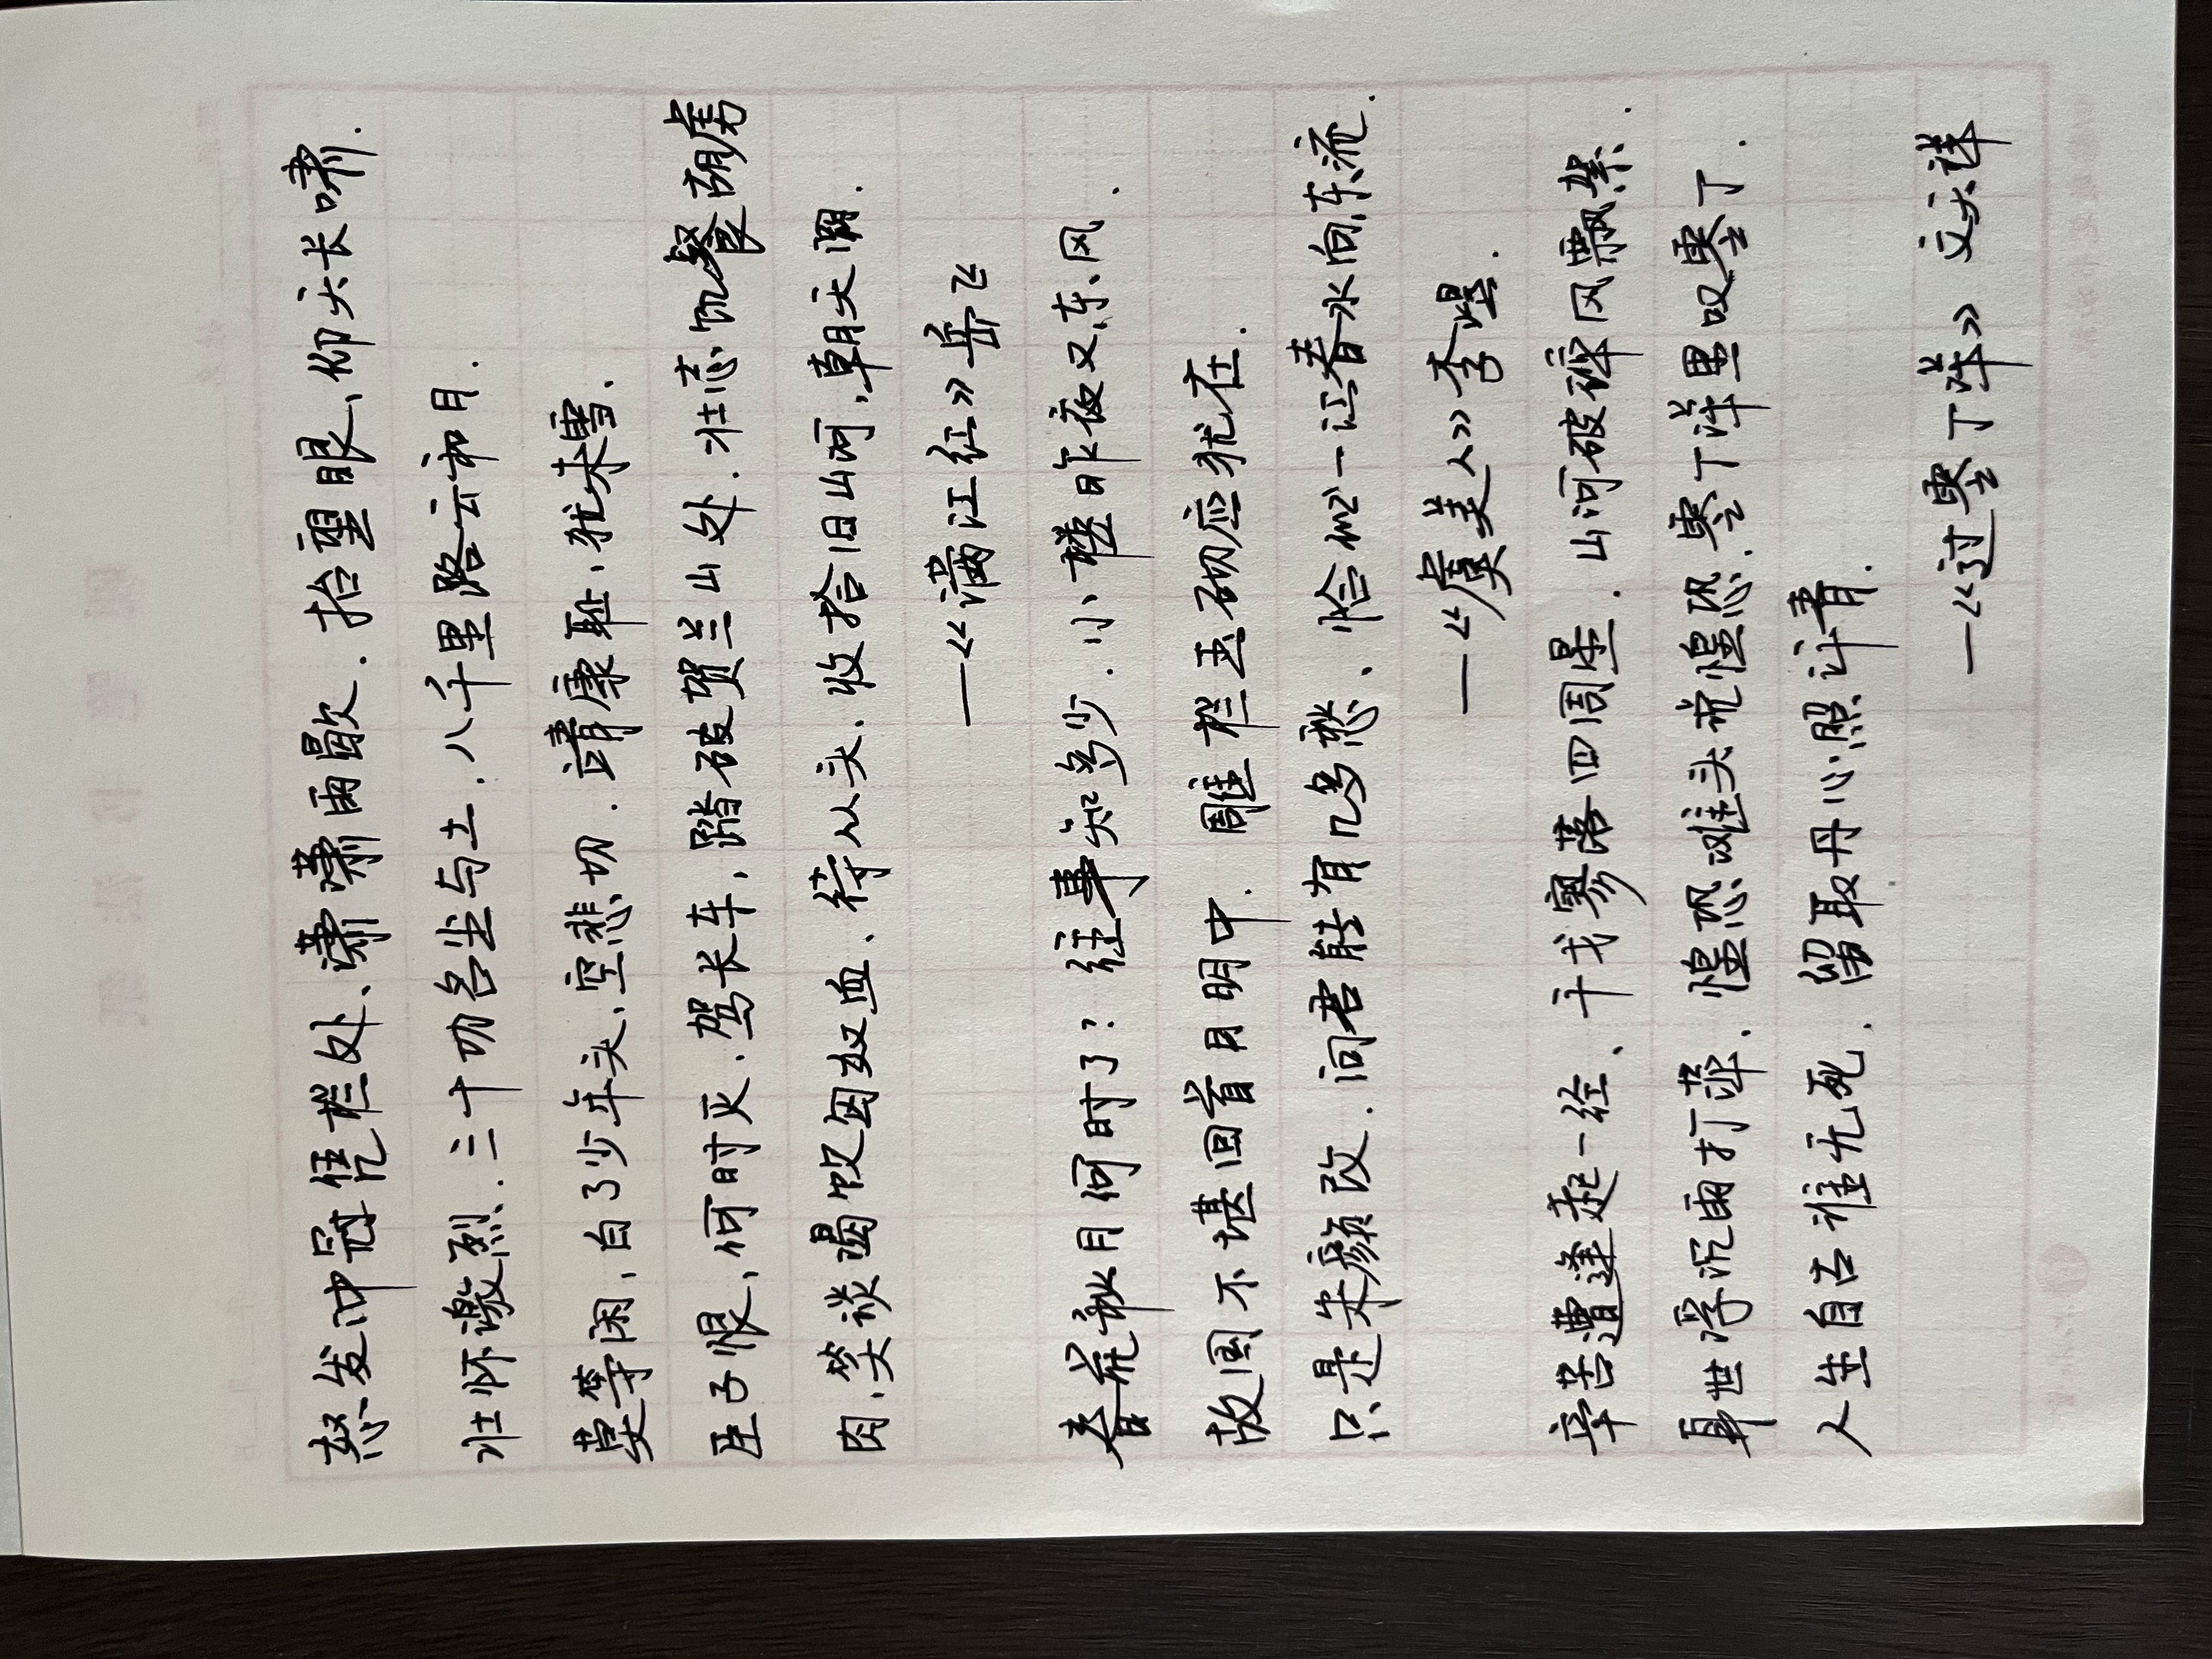 怒发冲冠凭栏处、潇潇雨歇. 抬望眼、仰头长啸.
壮怀激烈. 三十功名尘与土. 八千里路云和月.
莫等闲、白了少年头、空悲切. 靖康耻、犹未雪.
臣子恨、何时灭. 驾长车、踏破贺兰山处. 壮志饥餐胡虏
肉、笑谈渴饮匈奴血、待从头、收拾旧山河,朝天阙.
—《满江红》岳飞
春花秋月何时了? 往事知多少. 小楼昨夜又东风.
故国不堪回首月明中. 雕栏玉砌应犹在.
只是朱颜改. 问君能有几多愁、恰似一江春水向东流.
—《虞美人》李煜.
辛苦遭逢起一经、干戈寥落四周星. 山河破碎风飘絮.
身世浮沉雨打萍. 惶恐滩头说惶恐. 零丁洋里叹零丁.
人生自古谁无死. 留取丹心照汗青.
—《过零丁洋》 文天祥